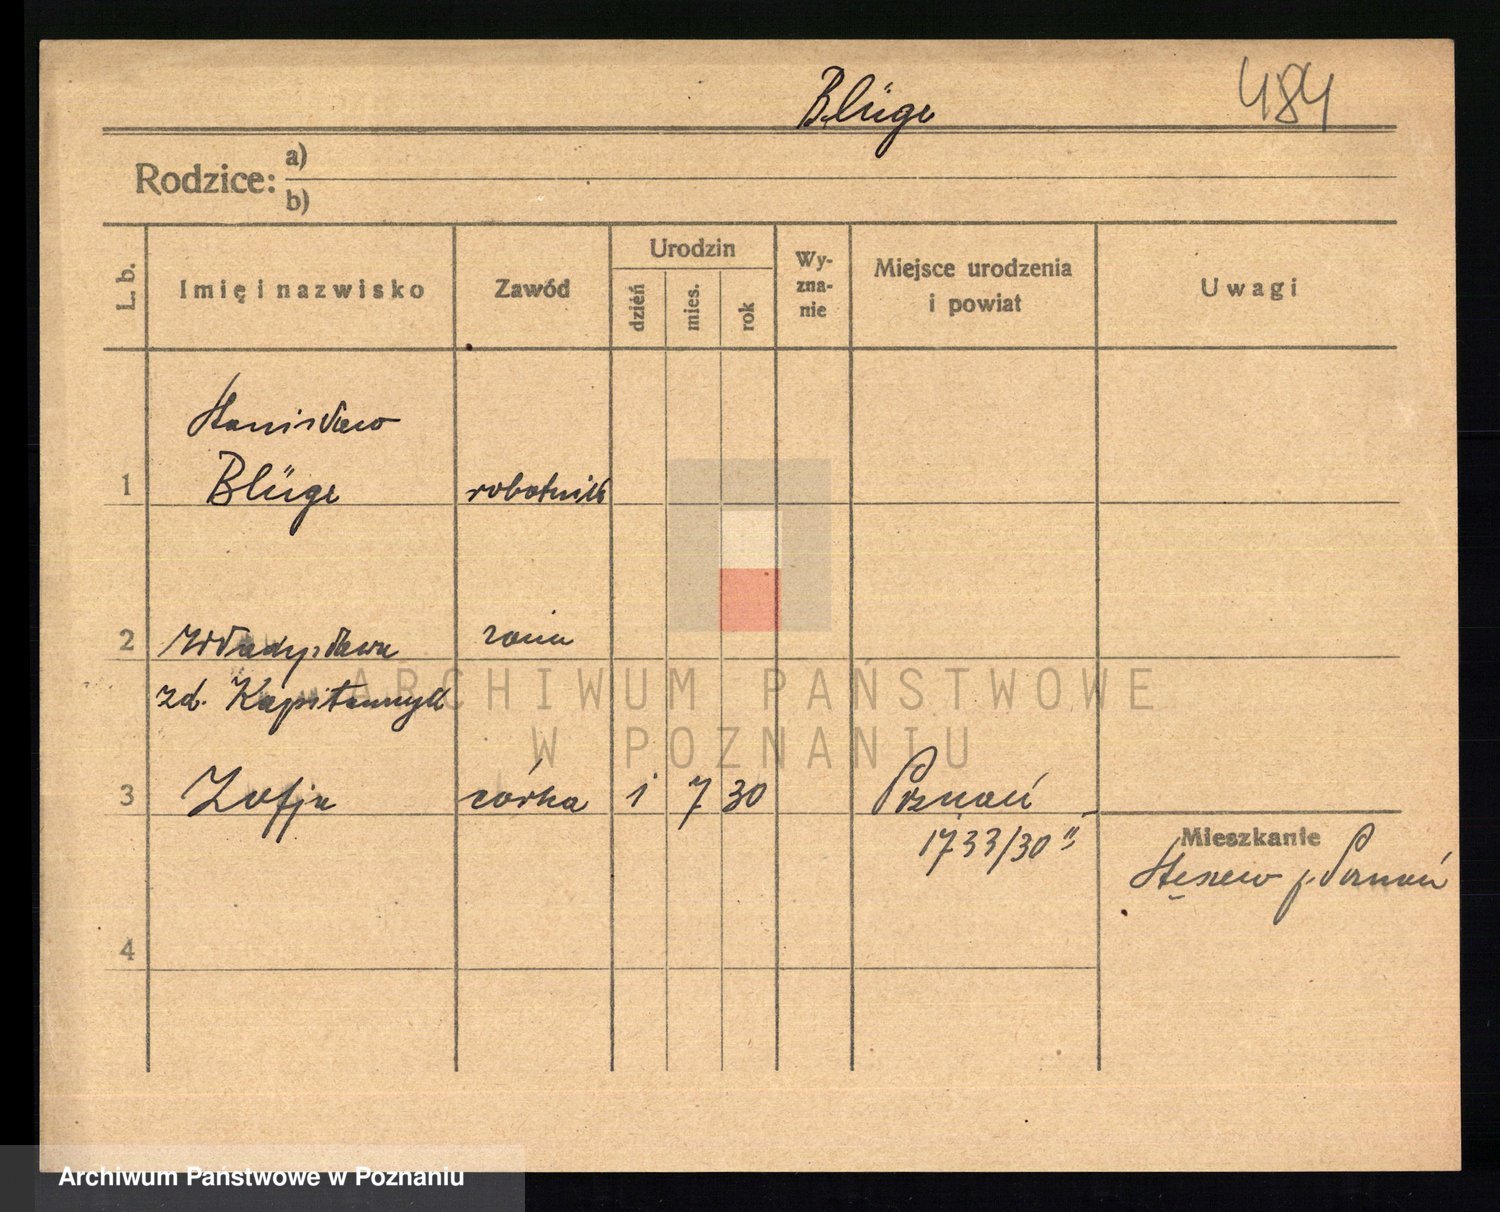 Blüge 484
Rodzice: a)
b)
L. b. Imię i nazwisko Zawód Urodzin Wy- Miejsce urodzenia Uwagi
dzień mies. rok zna- i powiat
nie
Stanisław
1 Blüge robotnik
2 Władysława żona
zd. Kapitańczyk
3 Zofja córka 1 7 30 Poznań
1733/30 II Mieszkanie
Stęszew p. Poznań
4
ARCHIWUM PAŃSTWOWE
W POZNANIU
Archiwum Państwowe w Poznaniu